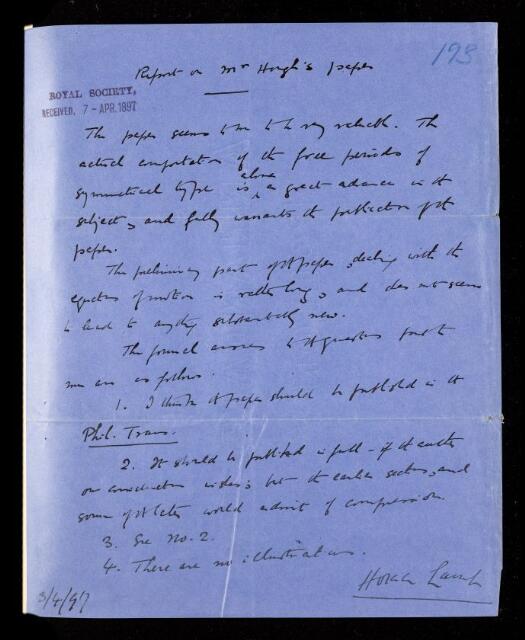 193
Report on Mr Hough's paper
ROYAL SOCIETY,
RECEIVED, 7 - APR. 1897
The paper seems to me to be very valuable. The
actual computation of the free periods of
symmetrical type is alone a great advance in the
subject, and fully warrants the publication of the
paper.
The preliminary part of the paper, dealing with the
equations of motion is rather long, and does not seem
to lead to anything substantially new.
The formal answers to the questions put to
me are as follows.
1. I think the paper should be published in the
Phil. Trans.
2. It should be published in full - if the author
on consideration wishes; but the earlier sections, and
some of the later would admit of compression.
3. See No. 2.
4. There are no illustrations.
Horace Lamb
3/4/97